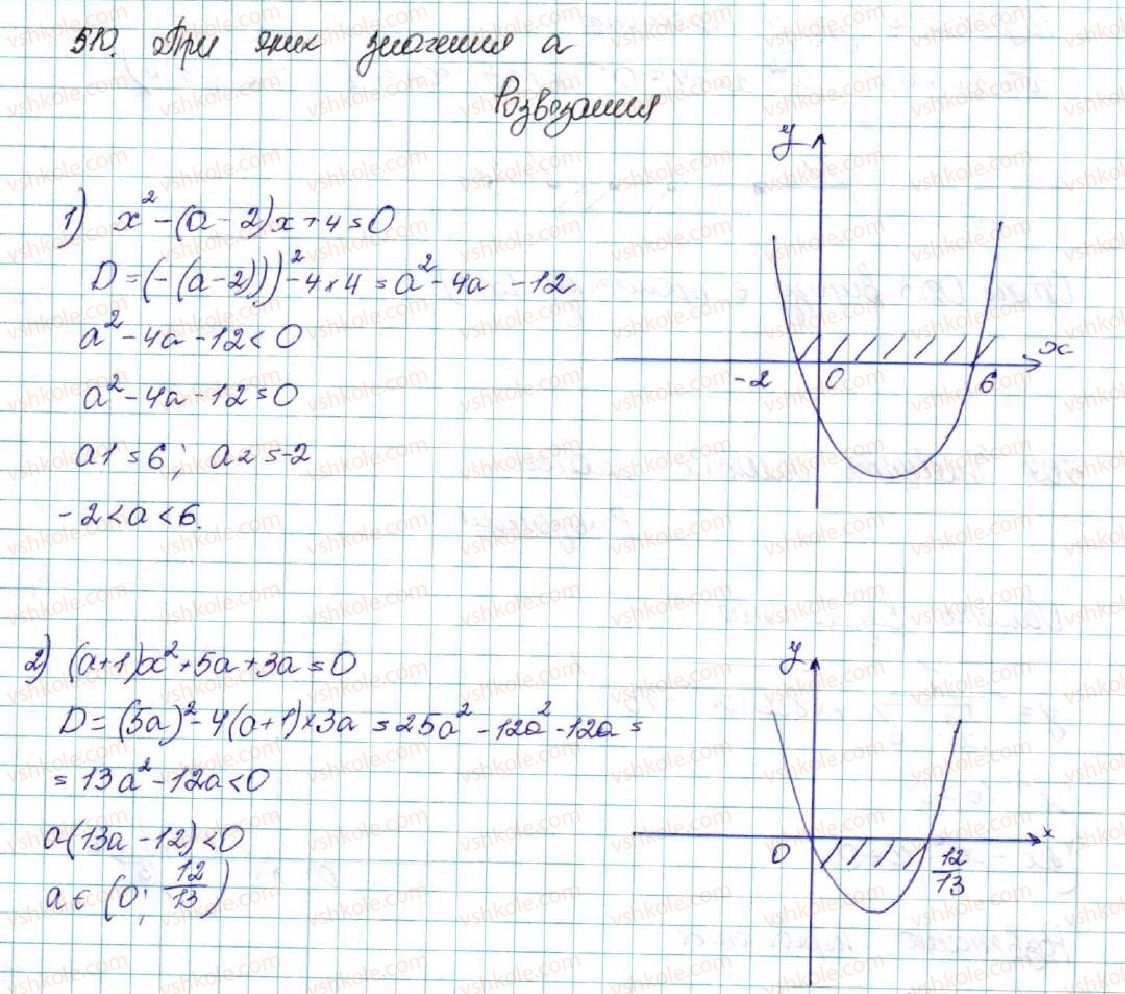 510. При яких значення a
Розвязання
1) x² - (a - 2)x + 4 = 0
D = (-(a-2)))² - 4 × 4 = a² - 4a - 12
a² - 4a - 12 < 0
a² - 4a - 12 = 0
a1 = 6; a2 = -2
-2 < a < 6.
y
x
-2 0 6
2) (a+1)x² + 5a + 3a = 0
D = (5a)² - 4(a+1) × 3a = 25a² - 12a² - 12a =
= 13a² - 12a < 0
a(13a - 12) < 0
a ∈ (0; 12/13)
y
x
0 12/13
vshkole.com